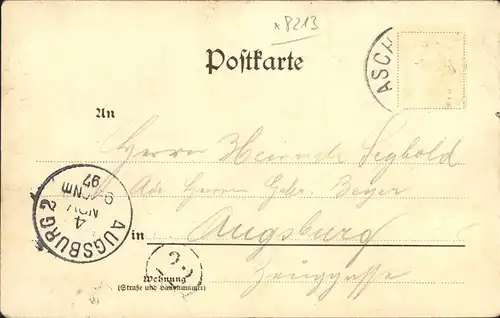 *8213
Postkarte
ASCH
An
Herrn Heinrich Segbold
Adr. Herrn Gebr. Beyer
in Augsburg
Zeuggasse
Wohnung
(Straße und Hausnummer)
AUGSBURG 2
4
NOV
Nm
97